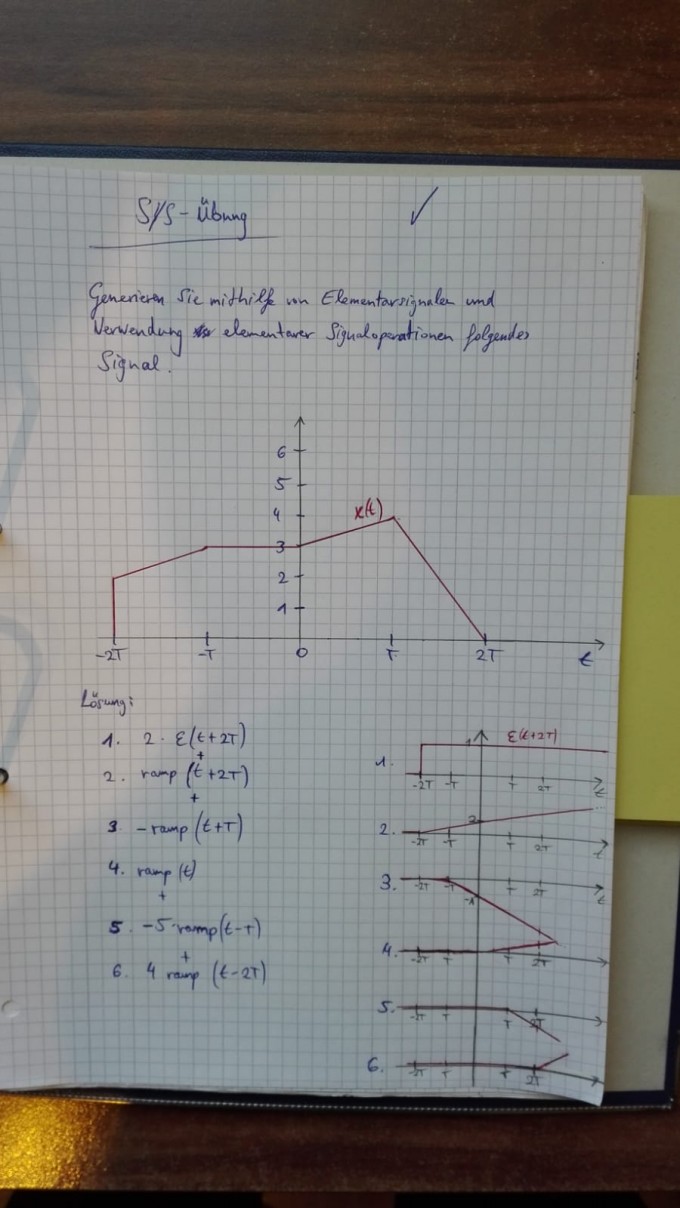 S/S-Übung
Generieren Sie mithilfe von Elementarsignalen und
Verwendung elementarer Signaloperationen folgendes
Signal.
6
5
4
x(t)
3
2
1
-2T -T 0 T 2T t
Lösung:
1. 2 · ε(t+2T)
+
2. ramp (t+2T)
+
3 -ramp (t+T)
4. ramp (t)
+
5. -5 ramp(t-T)
+
6. 4 ramp (t-2T)
1 ε(t+2T)
1.
-2T -T T 2T t
2
2.
-2T -T T 2T t
3.
-2T -T T 2T t
-1
4.
-2T T T 2T
5.
-2T T T 2T
6.
-2T T T 2T